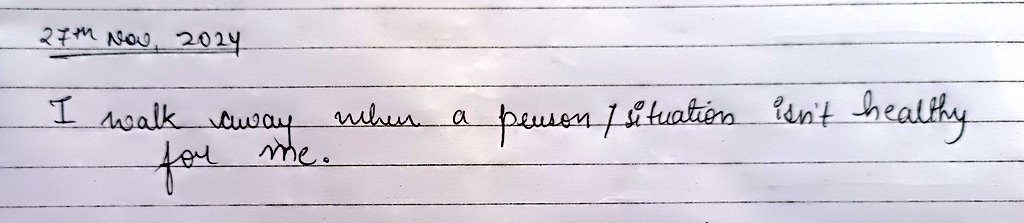 27th Nov, 2024
I walk away when a person/situation isn't healthy
for me.